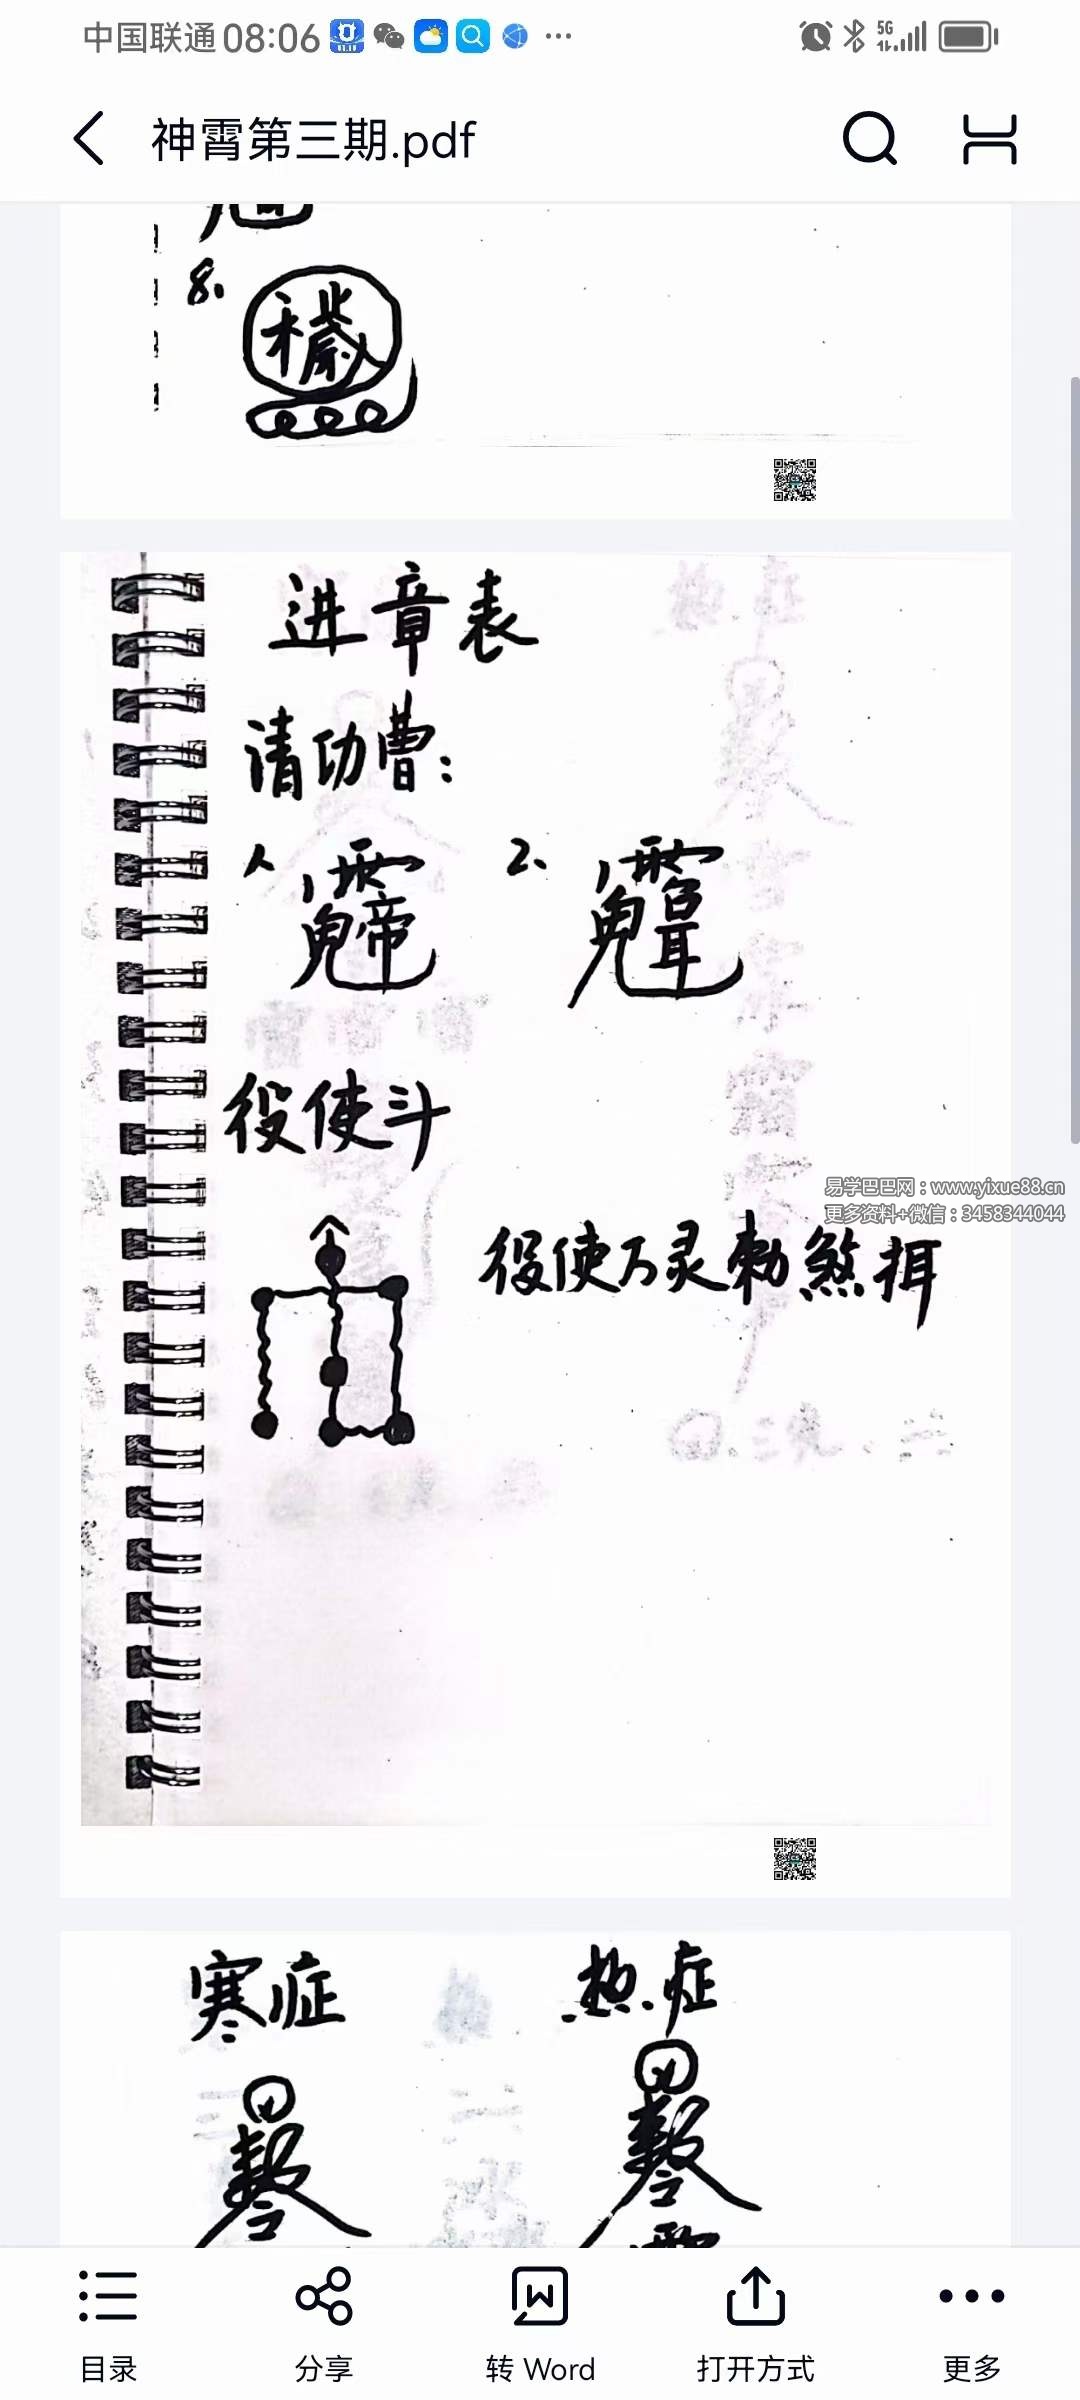 中国联通 08:06
5G
神霄第三期.pdf
8、
进章表
请功曹：
1、 2、
役使斗
役使万灵勅煞挕
易学巴巴网：www.yixue88.cn
更多资料+微信：3458344044
寒症 热症
目录 分享 转 Word 打开方式 更多